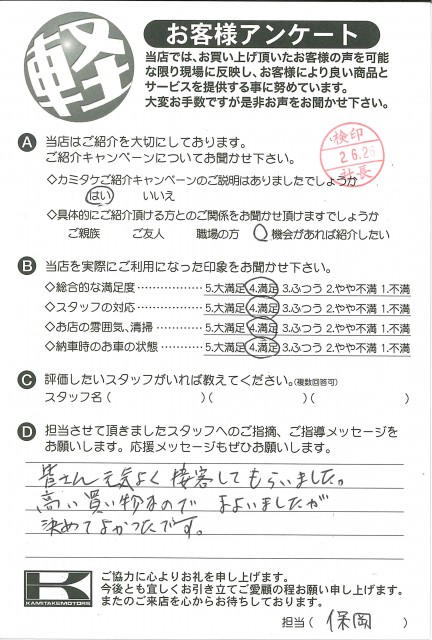 軽
お客様アンケート
当店では、お買い上げ頂いたお客様の声を可能
な限り現場に反映し、お客様により良い商品と
サービスを提供する事に努めています。
大変お手数ですが是非お声をお聞かせ下さい。
A 当店はご紹介を大切にしております。
ご紹介キャンペーンについてお聞かせ下さい。
検印
26.2
社長
◇カミタケご紹介キャンペーンのご説明はありましたでしょうか
はい いいえ
◇具体的にご紹介頂ける方とのご関係をお聞かせ頂けますでしょうか
ご親族 ご友人 職場の方 機会があれば紹介したい
B 当店を実際にご利用になった印象をお聞かせ下さい。
◇総合的な満足度………………… 5.大満足 4.満足 3.ふつう 2.やや不満 1.不満
◇スタッフの対応………………… 5.大満足 4.満足 3.ふつう 2.やや不満 1.不満
◇お店の雰囲気、清掃…………… 5.大満足 4.満足 3.ふつう 2.やや不満 1.不満
◇納車時のお車の状態…………… 5.大満足 4.満足 3.ふつう 2.やや不満 1.不満
C 評価したいスタッフがいれば教えてください。(複数回答可)
スタッフ名( )( )( )
D 担当させて頂きましたスタッフへのご指摘、ご指導メッセージを
お願いします。応援メッセージもぜひお願いします。
皆さん元気よく接客してもらいました。
高い買い物なので まよいましたが
決めてよかったです。
KAMITAKEMOTORS
ご協力に心よりお礼を申し上げます。
今後とも宜しくお引き立てご愛顧の程お願い申し上げます。
またのご来店を心からお待ちしております。
担当( 保岡 )